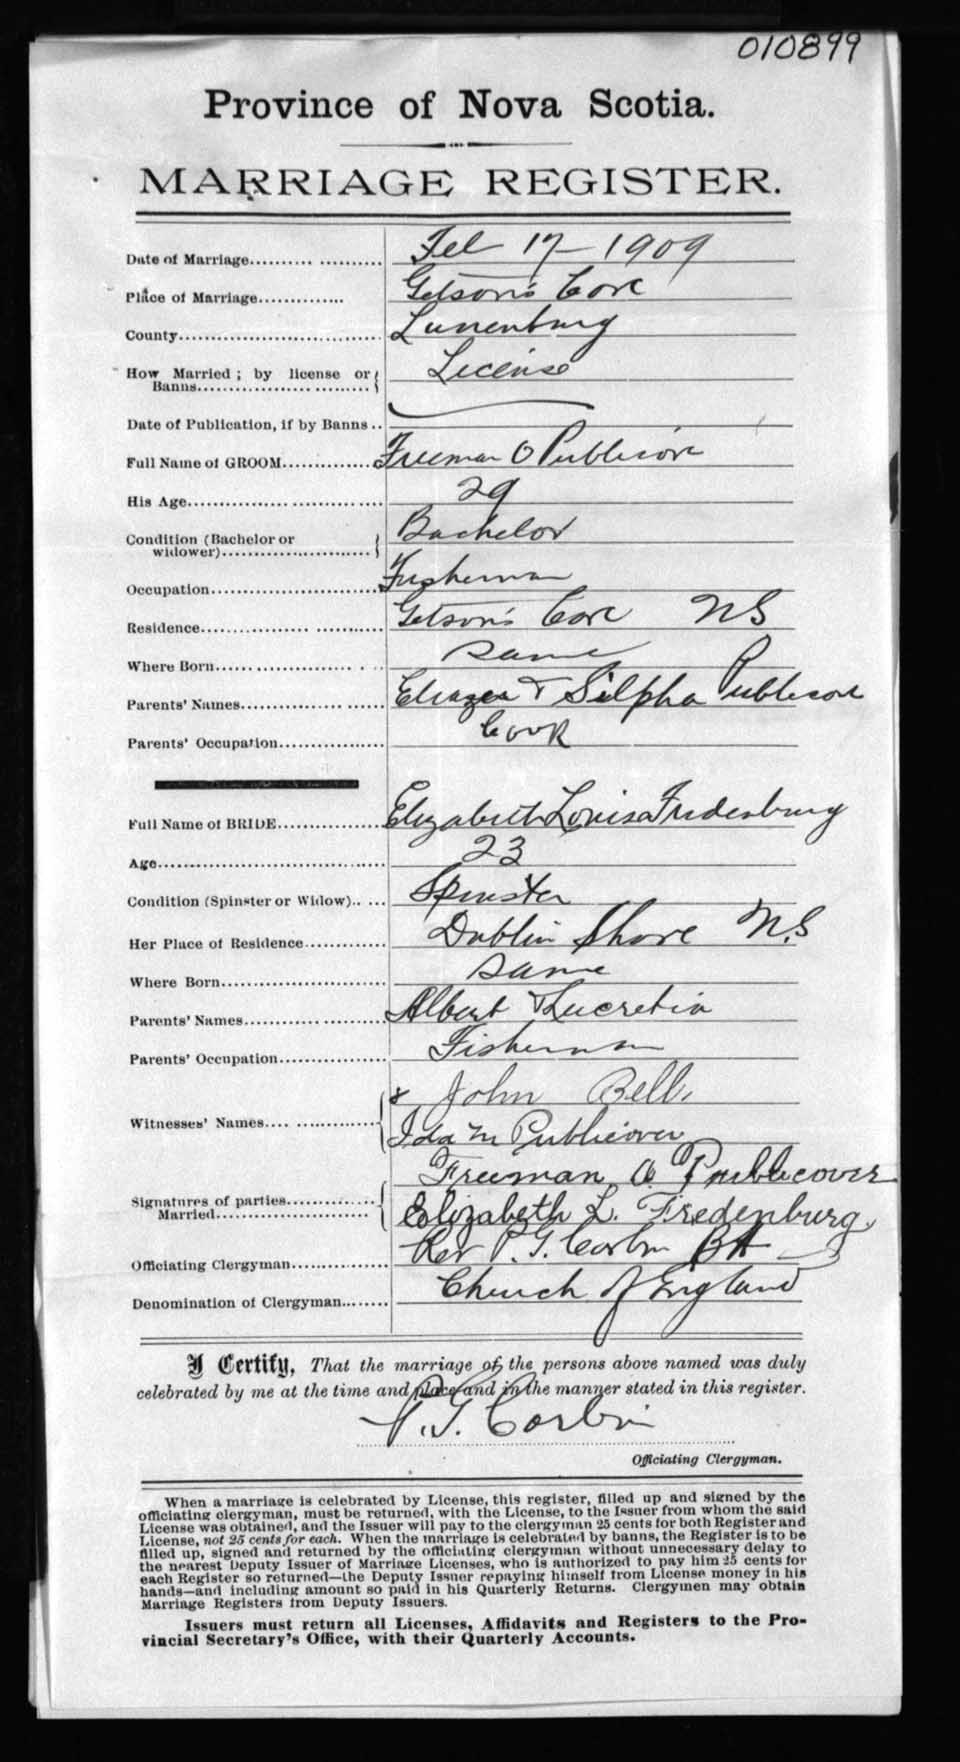 010899
Province of Nova Scotia.
MARRIAGE REGISTER.
Date of Marriage.......... Feb 17 - 1909
Place of Marriage.............. Getson's Cove
County.............................. Lunenburg
How Married ; by license or Banns.......................... License
Date of Publication, if by Banns ..
Full Name of GROOM.............. Freeman O Publicover
His Age.............................. 29
Condition (Bachelor or widower)....................... Bachelor
Occupation.......................... Fisherman
Residence............................ Getson's Cove NS
Where Born........................ same
Parents' Names.................... & Silpha Publicover
Parents' Occupation................ Cook
Full Name of BRIDE................ Elizabeth Louisa Fredenburg
Age................................... 23
Condition (Spinster or Widow)..... Spinster
Her Place of Residence............ Dublin Shore N.S
Where Born........................ same
Parents' Names.................... Albert & Lucretia
Parents' Occupation................ Fisherman
Witnesses' Names.... ............. John Bell
Ida M Publicover
Freeman O Publicover
Signatures of parties Married........................ Elizabeth L. Fredenburg
Officiating Clergyman.............. Rev P. G. Corbin BA
Denomination of Clergyman........ Church of England
I Certify, That the marriage of the persons above named was duly
celebrated by me at the time and place and in the manner stated in this register.
P. G. Corbin
Officiating Clergyman.
When a marriage is celebrated by License, this register, filled up and signed by the
officiating clergyman, must be returned, with the License, to the Issuer from whom the said
License was obtained, and the Issuer will pay to the clergyman 25 cents for both Register and
License, not 25 cents for each. When the marriage is celebrated by banns, the Register is to be
filled up, signed and returned by the officiating clergyman without unnecessary delay to
the nearest Deputy Issuer of Marriage Licenses, who is authorized to pay him 25 cents for
each Register so returned—the Deputy Issuer repaying himself from License money in his
hands—and including amount so paid in his Quarterly Returns. Clergymen may obtain
Marriage Registers from Deputy Issuers.
Issuers must return all Licenses, Affidavits and Registers to the Pro-
vincial Secretary's Office, with their Quarterly Accounts.